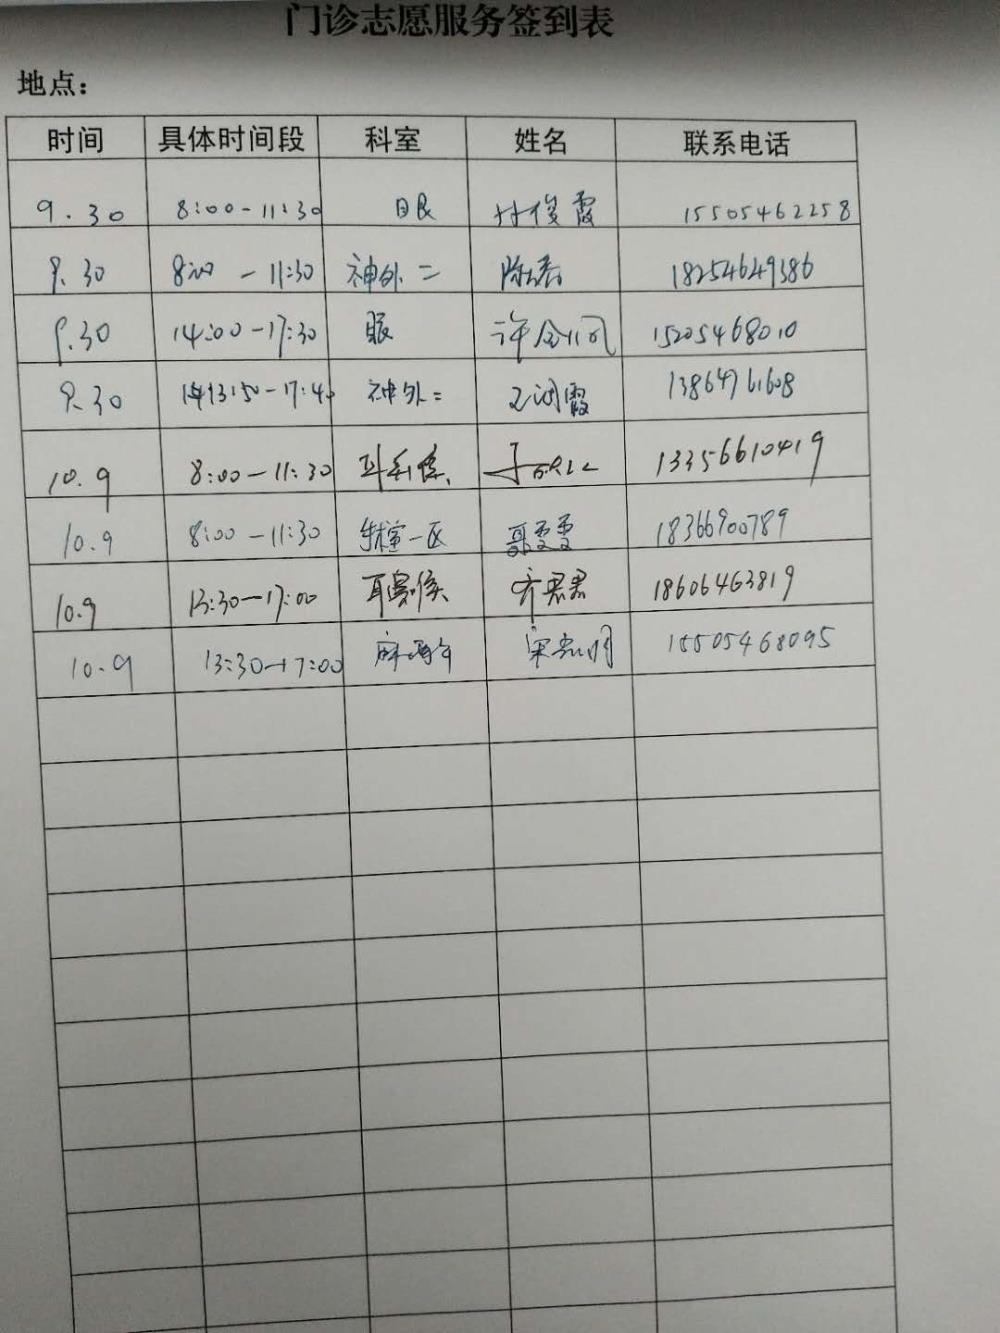 门诊志愿服务签到表
地点：
时间 具体时间段 科室 姓名 联系电话
9.30 8:00-11:30 眼 俊霞 15505462258
9.30 8:00-11:30 神外二 18254649386
9.30 14:00-17:30 眼 许 15205468010
9.30 13:50-17:40 神外二 霞 13864761608
10.9 8:00-11:30 13356610419
10.9 8:00-11:30 一区 雯雯 18366900789
10.9 13:30-17:00 耳鼻喉 齐君君 18606463819
10.9 13:30-17:00 宋 明 15505468095